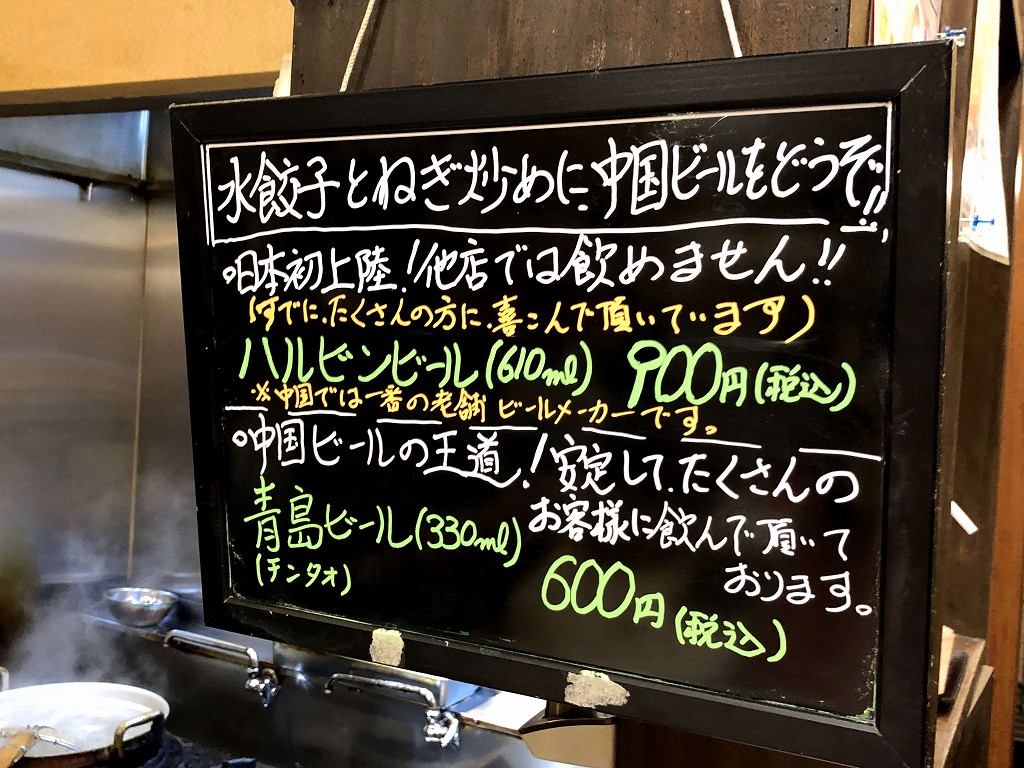 水餃子とねぎ炒めに中国ビールをどうぞ!!
日本初上陸!他店では飲めません!!
(すでに、たくさんの方に、喜こんで頂いています)
ハルビンビール(610ml) 900円(税込)
※中国では一番の老舗 ビールメーカーです。
中国ビールの王道!安定して、たくさんの
お客様に飲んで頂いて
おります。
青島ビール(330ml)
(チンタオ)
600円(税込)